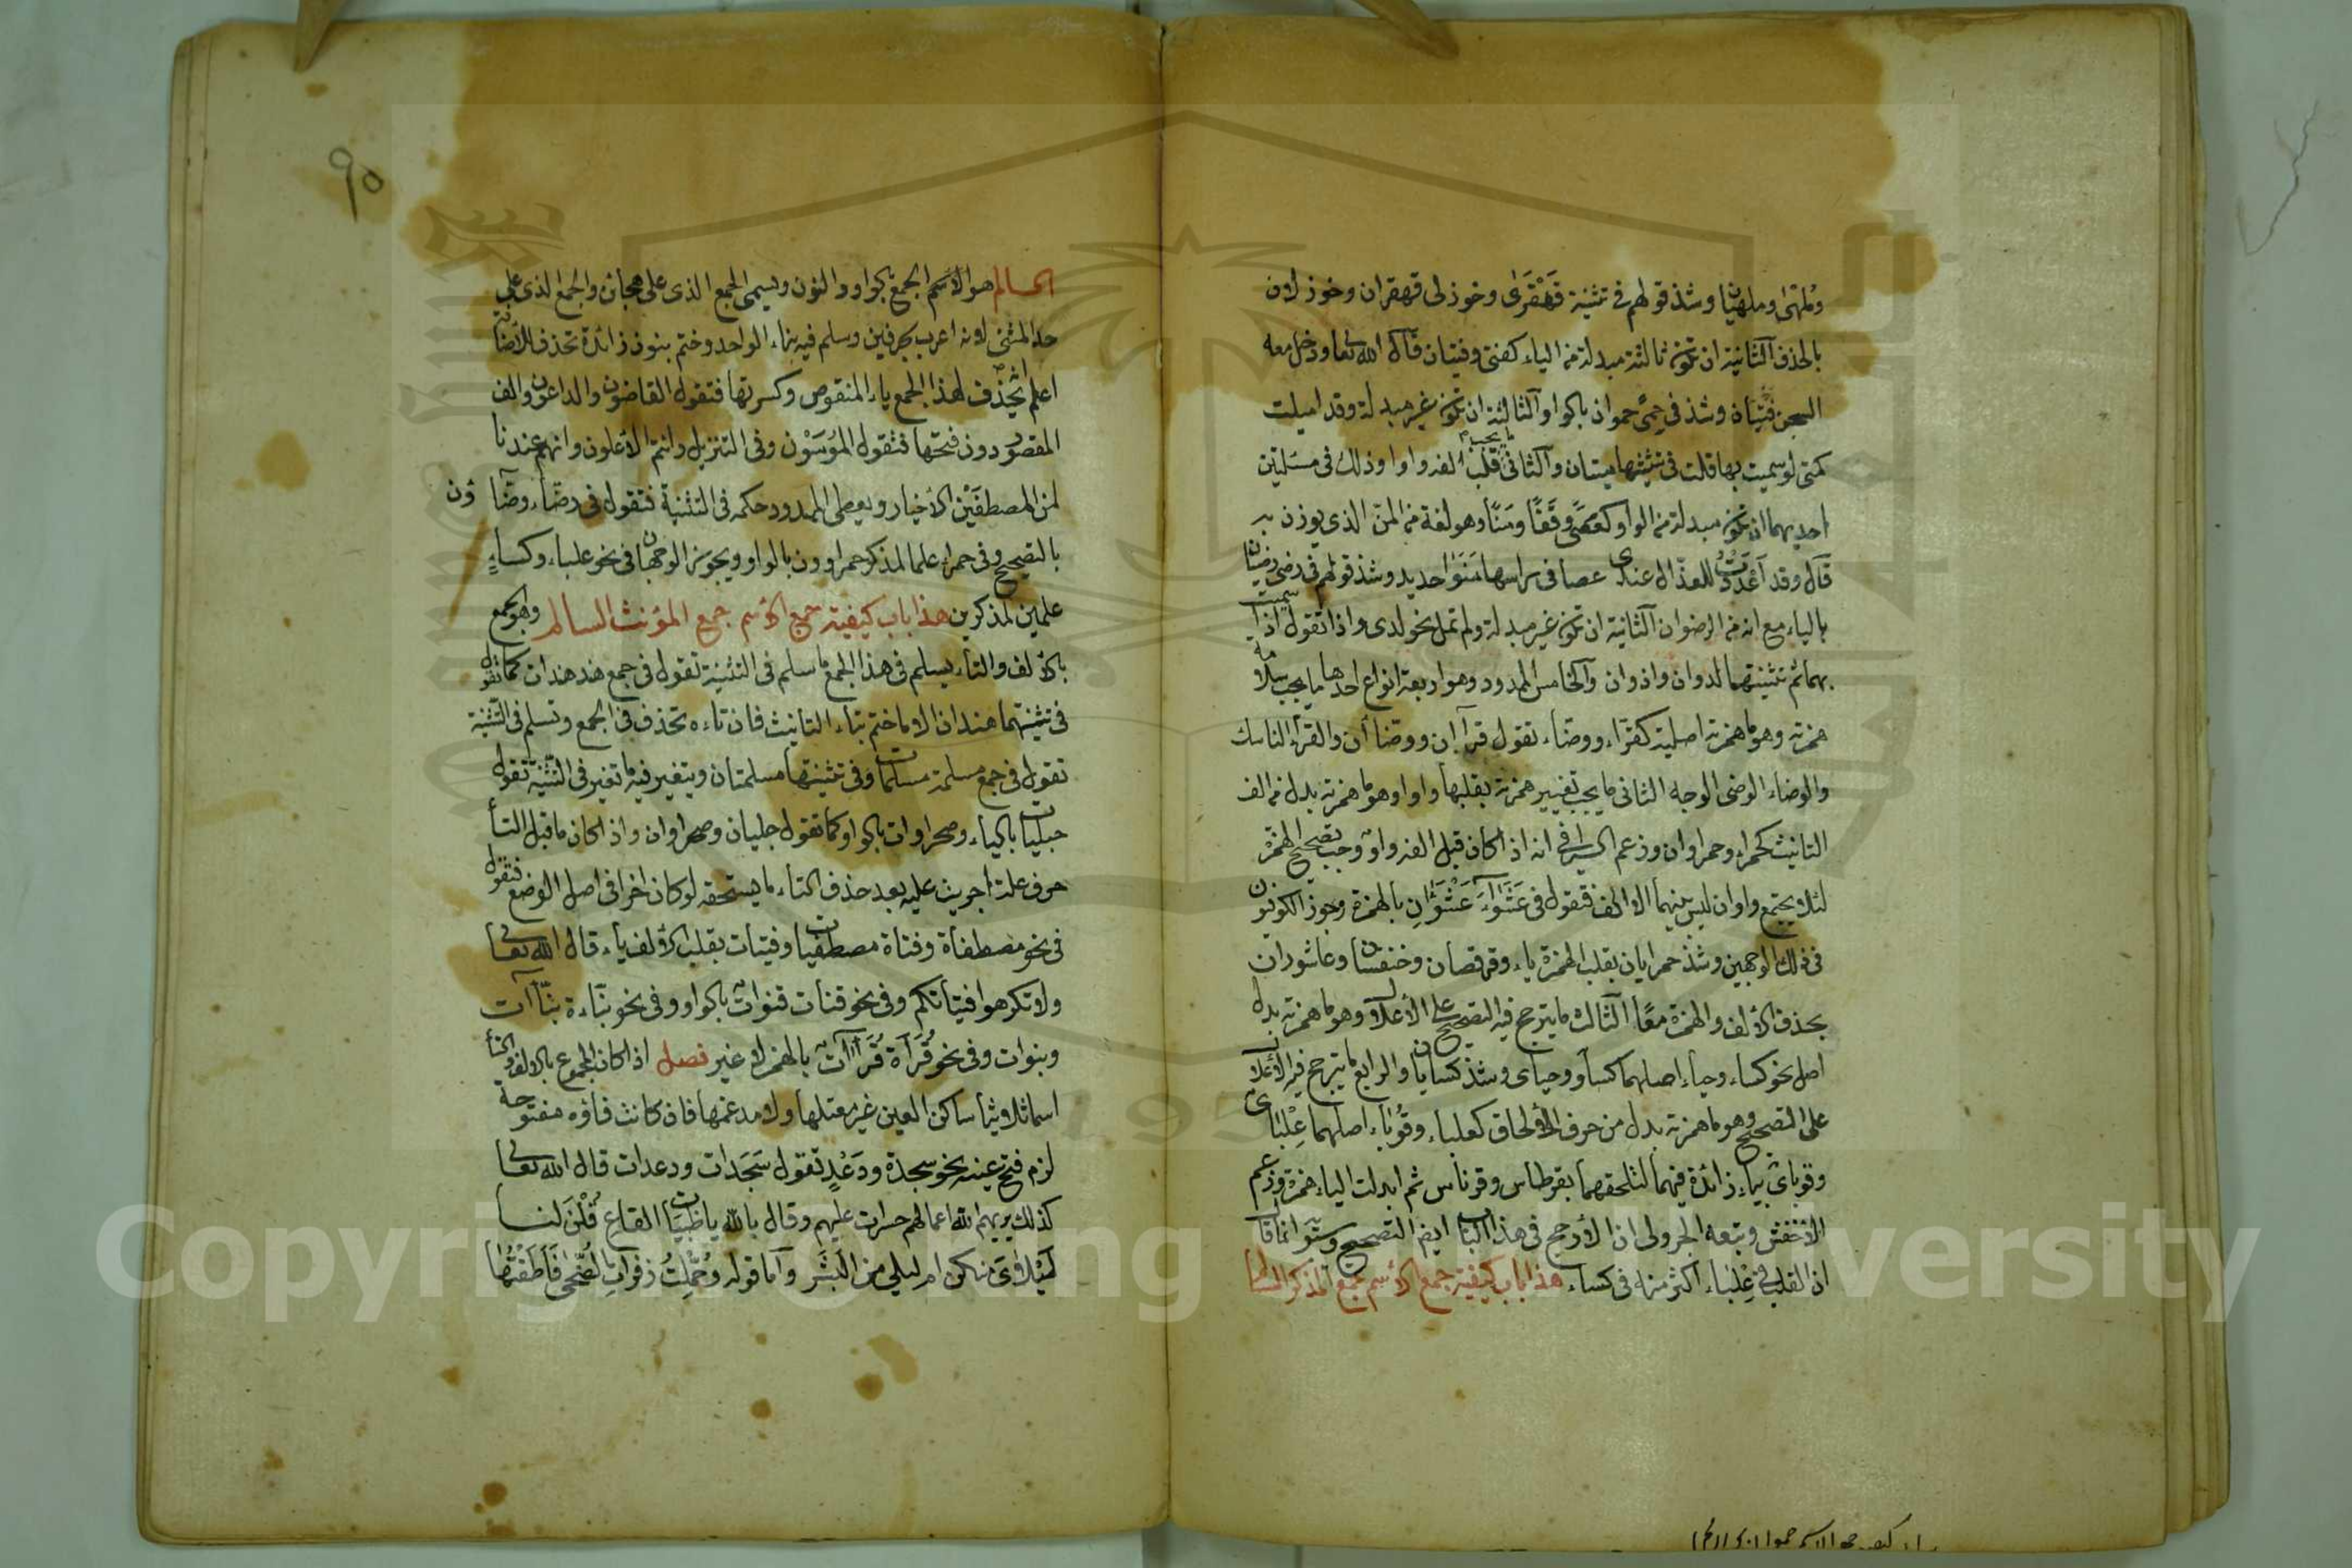 وملهى وملهيان وشذ قولهم فى تثنية قَهْقَرَى وخوزلى قهقران وخوزلان
بالحذف الثانية ان تكون ثالثة مبدلة من الياء كفتى وفتيان قال الله تعا ودخل معه
السجن فتيان وشذ فى حِمًى حموان بالواو الثالثة ان تكون غير مبدلة وقد اميلت
كمتى لو سميت بها قلت فى تثنيتها متيان والثانى ما يجب قلب الفه واوا وذلك فى مسئلتين
احديهما ان تكون مبدلة من الواو كعصًى وقفًا ومنًا وهو لغة فى المنّ الذى يوزن به
قال وقد اَعْدَدْتُ للعذّال عندى عصا فى راسها مَنَوَا حديد وشذ قولهم فى رضى رضيان
بالياء مع انه من الرضوان الثانية ان تكون غير مبدلة ولم تمل نحو لدى واذا تقول اذا سميت
بهما ثم تثنيتهما لدوان واذوان والخامس الممدود وهو اربعة انواع احدها ما يجب سلامة
همزته وهو ما همزته اصلية كقرّاء ووضّاء تقول قراآن ووضّاآن والقرّاء الناسك
والوضاء الوضى الوجه الثانى ما يجب تغيير همزته بقلبها واوا وهو ما همزته بدل من الف
التانيث كحمراء وحمراوان وزعم السيرافى انه اذا كان قبل الفه واو وجب تصحيح الهمزة
لئلا يجتمع واوان ليس بينهما الا الف فتقول فى عَشْوَاءَ عَشْوَاءانِ بالهمزة وجوز الكوفيون
فى ذلك الوجهين وشذ حمرايان بقلب الهمزة ياء وقرفصان وخنفسان وعاشوران
بحذف الالف والهمزة معًا الثالث ما يترجح فيه التصحيح على الاعلال وهو ما همزته بدل
اصل نحو كساء وحياء اصلهما كساو وحياى وشذ كسايان والرابع ما يترجح فيه الاعلال
على التصحيح وهو ما همزته بدل من حرف الالحاق كعلباء وقُوباء اصلهما عِلْباى
وقوباى بياء زائدة فيهما لتلحقهما بقرطاس وقرناس ثم ابدلت الياء همزة وزعم
الاخفش وتبعه الجزولى ان الارجح فى هذا الباب ايضا التصحيح
ان القلب فى عِلْباء اكثر منه فى كساء هذا باب كيفية جمع الاسم جمع المذكر السالم
٩٥
السالم هو الاسم الجمع بالواو والنون ويسمى الجمع الذى على هجائن والجمع الذى على
حد المثنى لانه اعرب بحرفين وسلم فيه بناء الواحد وختم بنون زائدة تحذف للاضافة
اعلم انه يحذف لهذا الجمع ياء المنقوص وكسرتها فتقول القاضون والداعون والف
المقصور دون فتحتها فتقول المُوسَوْن وفى التنزيل وانتم الاعلون وانهم عندنا
لمن المصطفَيْن الاخيار ويعطى الممدود حكمه فى التثنية فتقول فى وضّاء وضّاؤن
بالتصحيح وفى حمراء علما لمذكر حمراوون بالواو ويجوز الوجهان فى نحو علباء وكساءٍ
علمين لمذكرين هذا باب كيفية جمع الاسم جمع المؤنث السالم وهو الجمع
بالالف والتاء يسلم فى هذا الجمع ما سلم فى التثنية تقول فى جمع هند هندات كما تقول
فى تثنيتهما هندان الا ما ختم بتاء التانيث فان تاءه تحذف فى الجمع وتسلم فى التثنية
تقول فى جمع مسلمة مسلمات وفى تثنيتها مسلمتان ويتغير فيه ما تغير فى التثنية تقول
حبليات بالياء وصحراوات بالواو كما تقول حبليان وصحراوان واذا كان ما قبل التاء
حرف علة اجريت عليه بعد حذف التاء ما يستحقه لو كان اخرا فى اصل الوضع فتقول
فى نحو مصطفاة وفتاة مصطفيات وفتيات بقلب الالف ياء قال الله تعا
ولا تكرهوا فتياتكم وفى نحو قنات قنوات بالواو وفى نحو نبّاءة نبّاآت
وبنوات وفى نحو قُرّاءة قُرّاآت بالهمز لا غير فصل اذا كان المجموع بالالف والتاء
اسما ثلاثيا ساكن العين غير معتلها ولا مدغمها فان كانت فاؤه مفتوحة
لزم فتح عينه نحو سجدة ودَعْدٍ تقول سَجَدات ودعدات قال الله تعا
كذلك يريهم الله اعمالهم حسرات عليهم وقال بالله يا ظَبيات القاع قُلْنَ لنا
لَيْلاىَ منكن ام ليلى من البَشَر واما قوله وحُمِّلتُ زفرات الضُّحى فَاَطَقْتُها